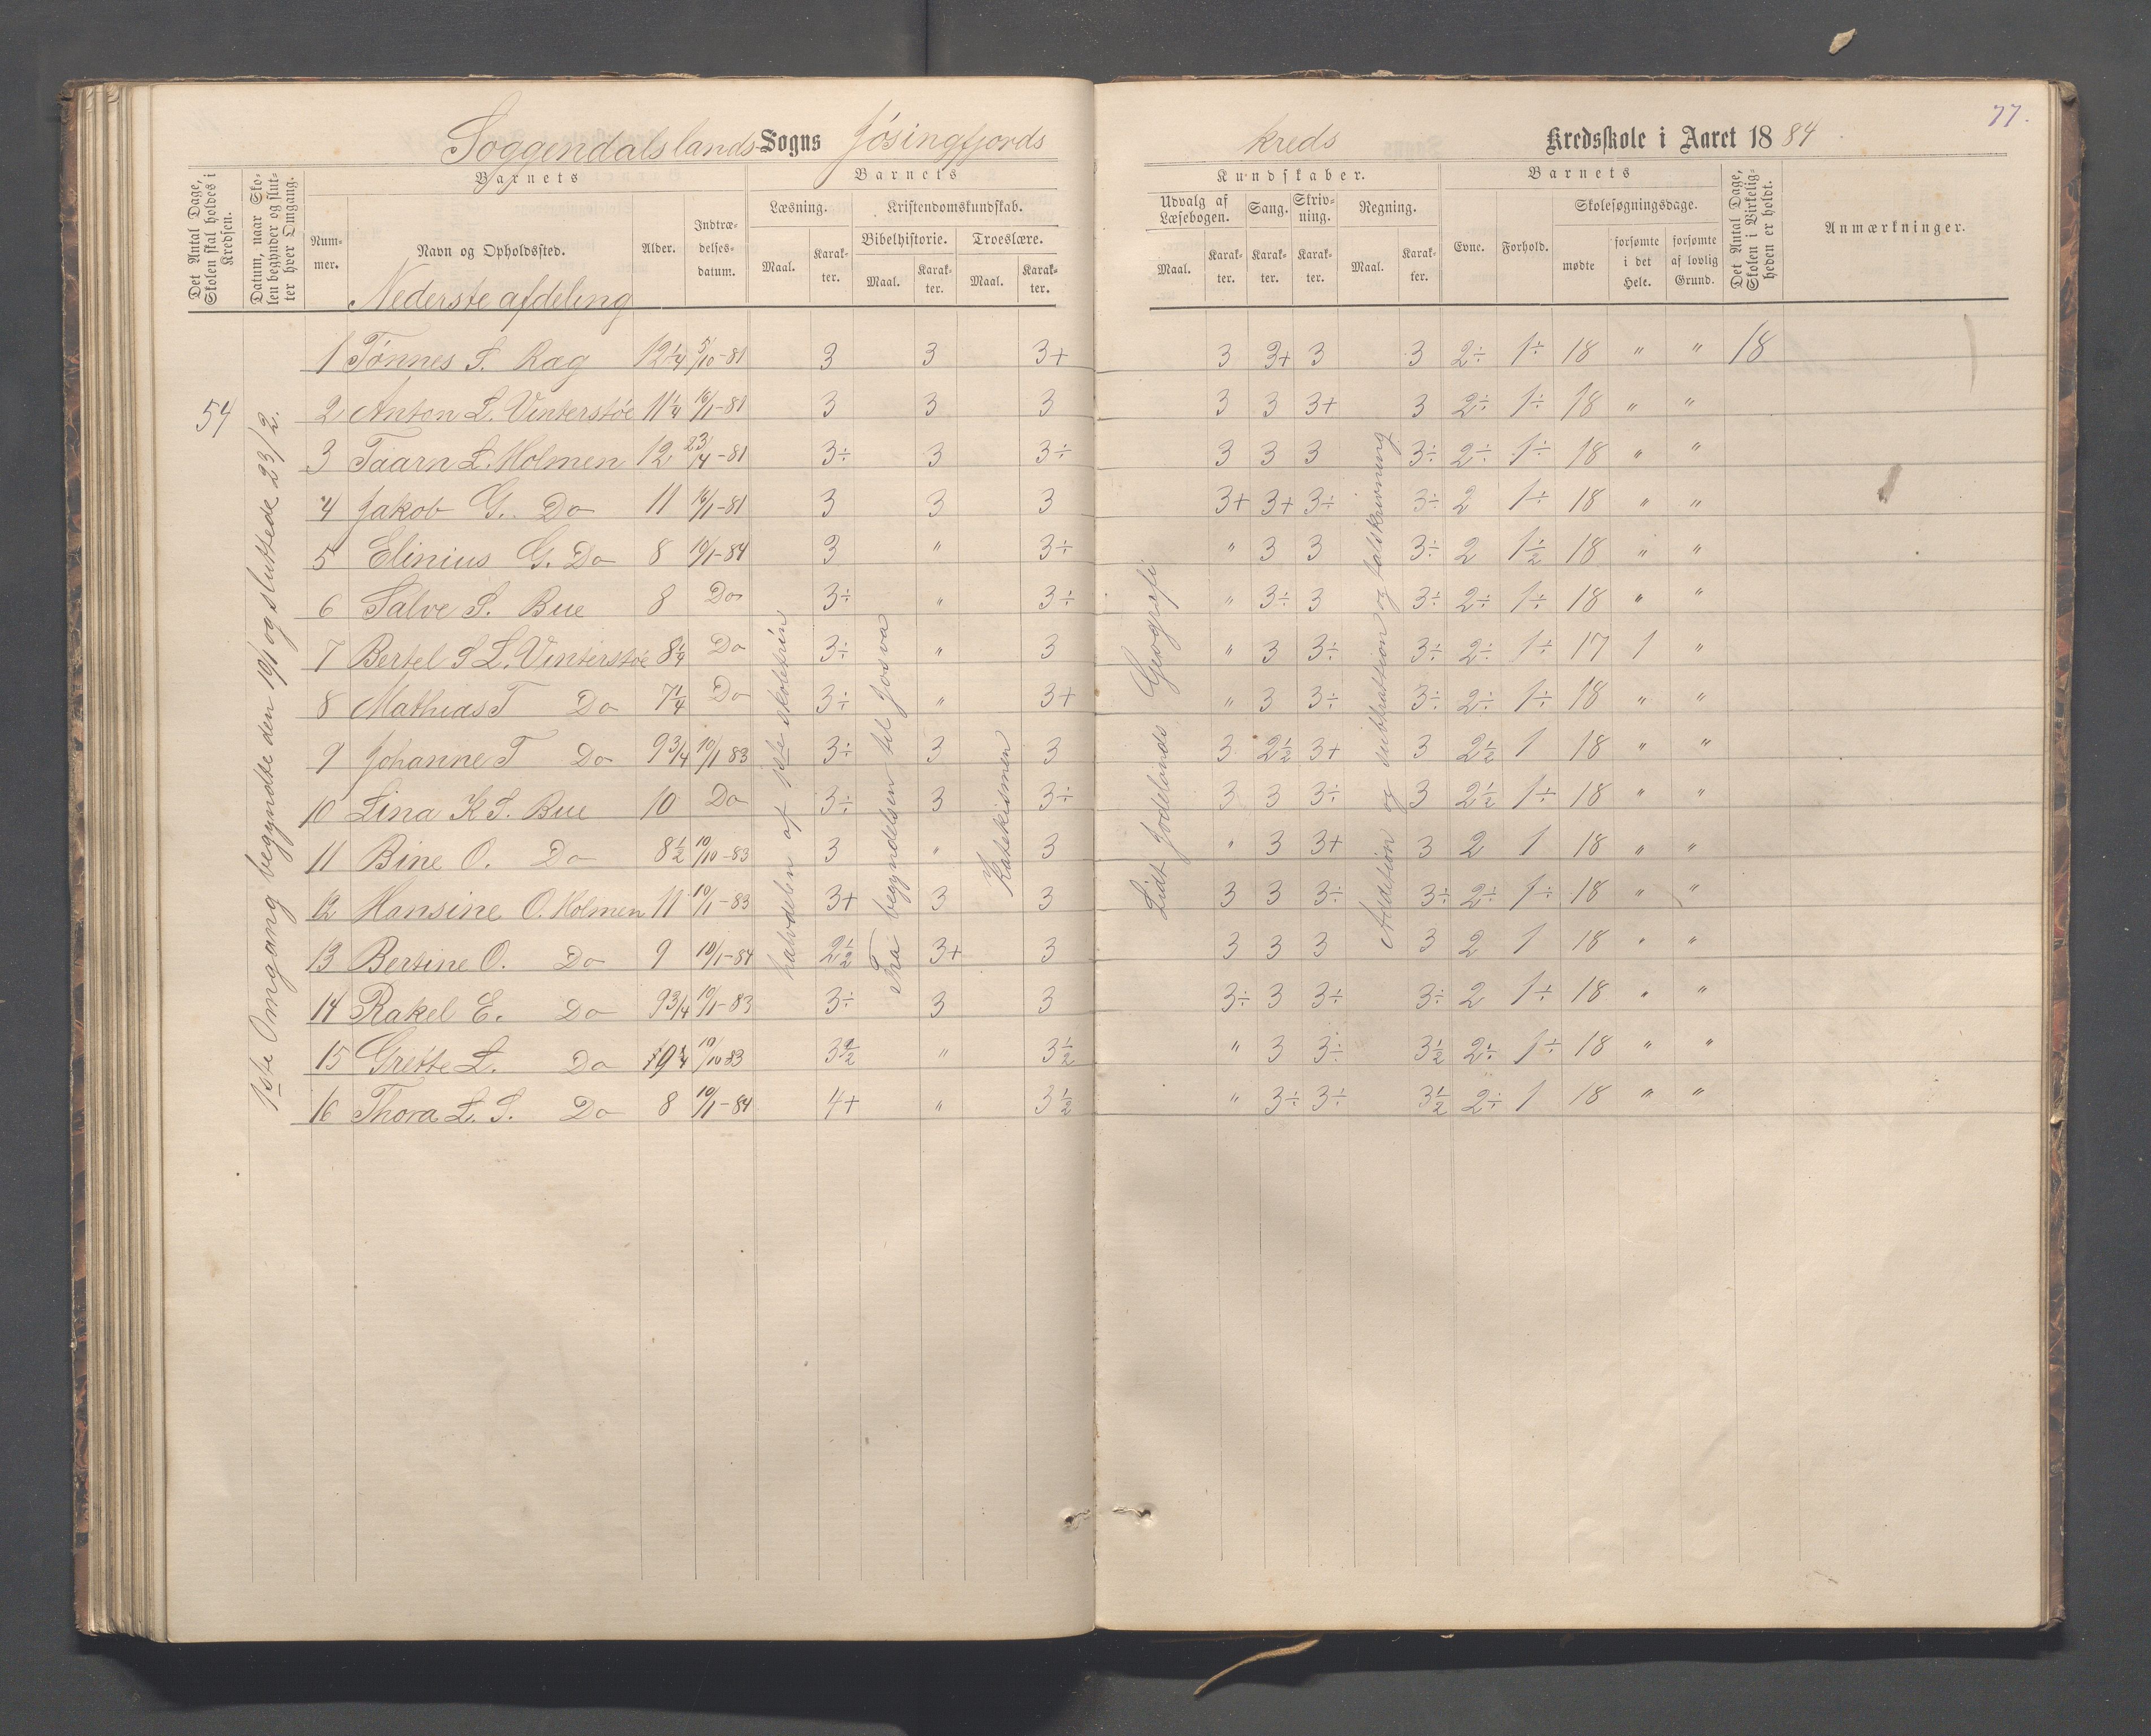 77.
Soggendals lands Sogns Jøsingfjords kreds Kredsskole i Aaret 1884.
Det Antal Dage, Skolen skal holdes i Kredsen.
Datum, naar Skolen begynder og slutter hver Omgang.
Barnets
Nummer.
Navn og Opholdssted.
Alder.
Indtrædelsesdatum.
Barnets
Læsning.
Maal.
Karakter.
Kristendomskundskab.
Bibelhistorie.
Maal.
Karakter.
Troeslære.
Maal.
Karakter.
Kundskaber.
Udvalg af Læsebogen.
Maal.
Karakter.
Sang.
Karakter.
Skrivning.
Karakter.
Regning.
Maal.
Karakter.
Barnets
Evne.
Forhold.
Skolesøgningsdage.
mødte
forsømte i det Hele.
forsømte af lovlig Grund.
Det Antal Dage, Skolen i Virkeligheden er holdt.
Anmærkninger.
Nederste afdeling
54
1ste Omgang begyndte den 19/1 og sluttede 23/2.
halvdelen af 1ste skoletrin
Fra begyndelsen til Josva
Katekismen
Lidt Jødelands Geografi
Addition og subtraktion og talskrivning
1 Tønnes S. Rag 12 1/4 5/10-81 3 3 3+ 3 3+ 3 3 2÷ 1÷ 18 " " 18
2 Anton L. Vinterstøe 11 1/4 16/1-81 3 3 3 3 3 3+ 3 2÷ 1÷ 18 " "
3 Taarn L. Holmen 12 23/4-81 3÷ 3 3÷ 3 3 3 3÷ 2÷ 1÷ 18 " "
4 Jakob G. Do 11 16/1-81 3 3 3 3+ 3+ 3÷ 3÷ 2 1÷ 18 " "
5 Elinius G. Do 8 10/1-84 3 " 3÷ " 3 3 3÷ 2 1 1/2 18 " "
6 Salve S. Bue 8 Do 3÷ " 3÷ " 3÷ 3 3÷ 2÷ 1÷ 18 " "
7 Bertel S L. Vinterstøe 8 1/4 Do 3÷ " 3 " 3 3÷ 3÷ 2÷ 1÷ 17 1 "
8 Mathias T Do 7 1/4 Do 3÷ " 3+ " 3 3÷ 3÷ 2÷ 1÷ 18 " "
9 Johanne T Do 9 3/4 10/1 83 3÷ 3 3 3 2 1/2 3+ 3 2 1/2 1 18 " "
10 Lina K S. Bue 10 Do 3÷ 3 3÷ 3 3 3÷ 3 2 1/2 1÷ 18 " "
11 Bine O. Do 8 1/2 10/10-83 3 " 3 " 3 3+ 3 2 1 18 " "
12 Hansine O. Holmen 11 10/1-83 3+ 3 3 3 3 3÷ 3÷ 2÷ 1÷ 18 " "
13 Bertine O. Do 9 10/1-84 2 1/2 3+ 3 3 3 3 3 2 1 18 " "
14 Rakel E. Do 9 3/4 10/1-83 3÷ 3 3 3÷ 3 3÷ 3÷ 2 1÷ 18 " "
15 Grette L. Do 9 1/4 10/10 83 3 1/2 " 3 1/2 " 3 3÷ 3 1/2 2÷ 1÷ 18 " "
16 Thora L. S. Do 8 10/1-84 4+ " 3 1/2 " 3÷ 3÷ 3 1/2 2÷ 1 18 " "